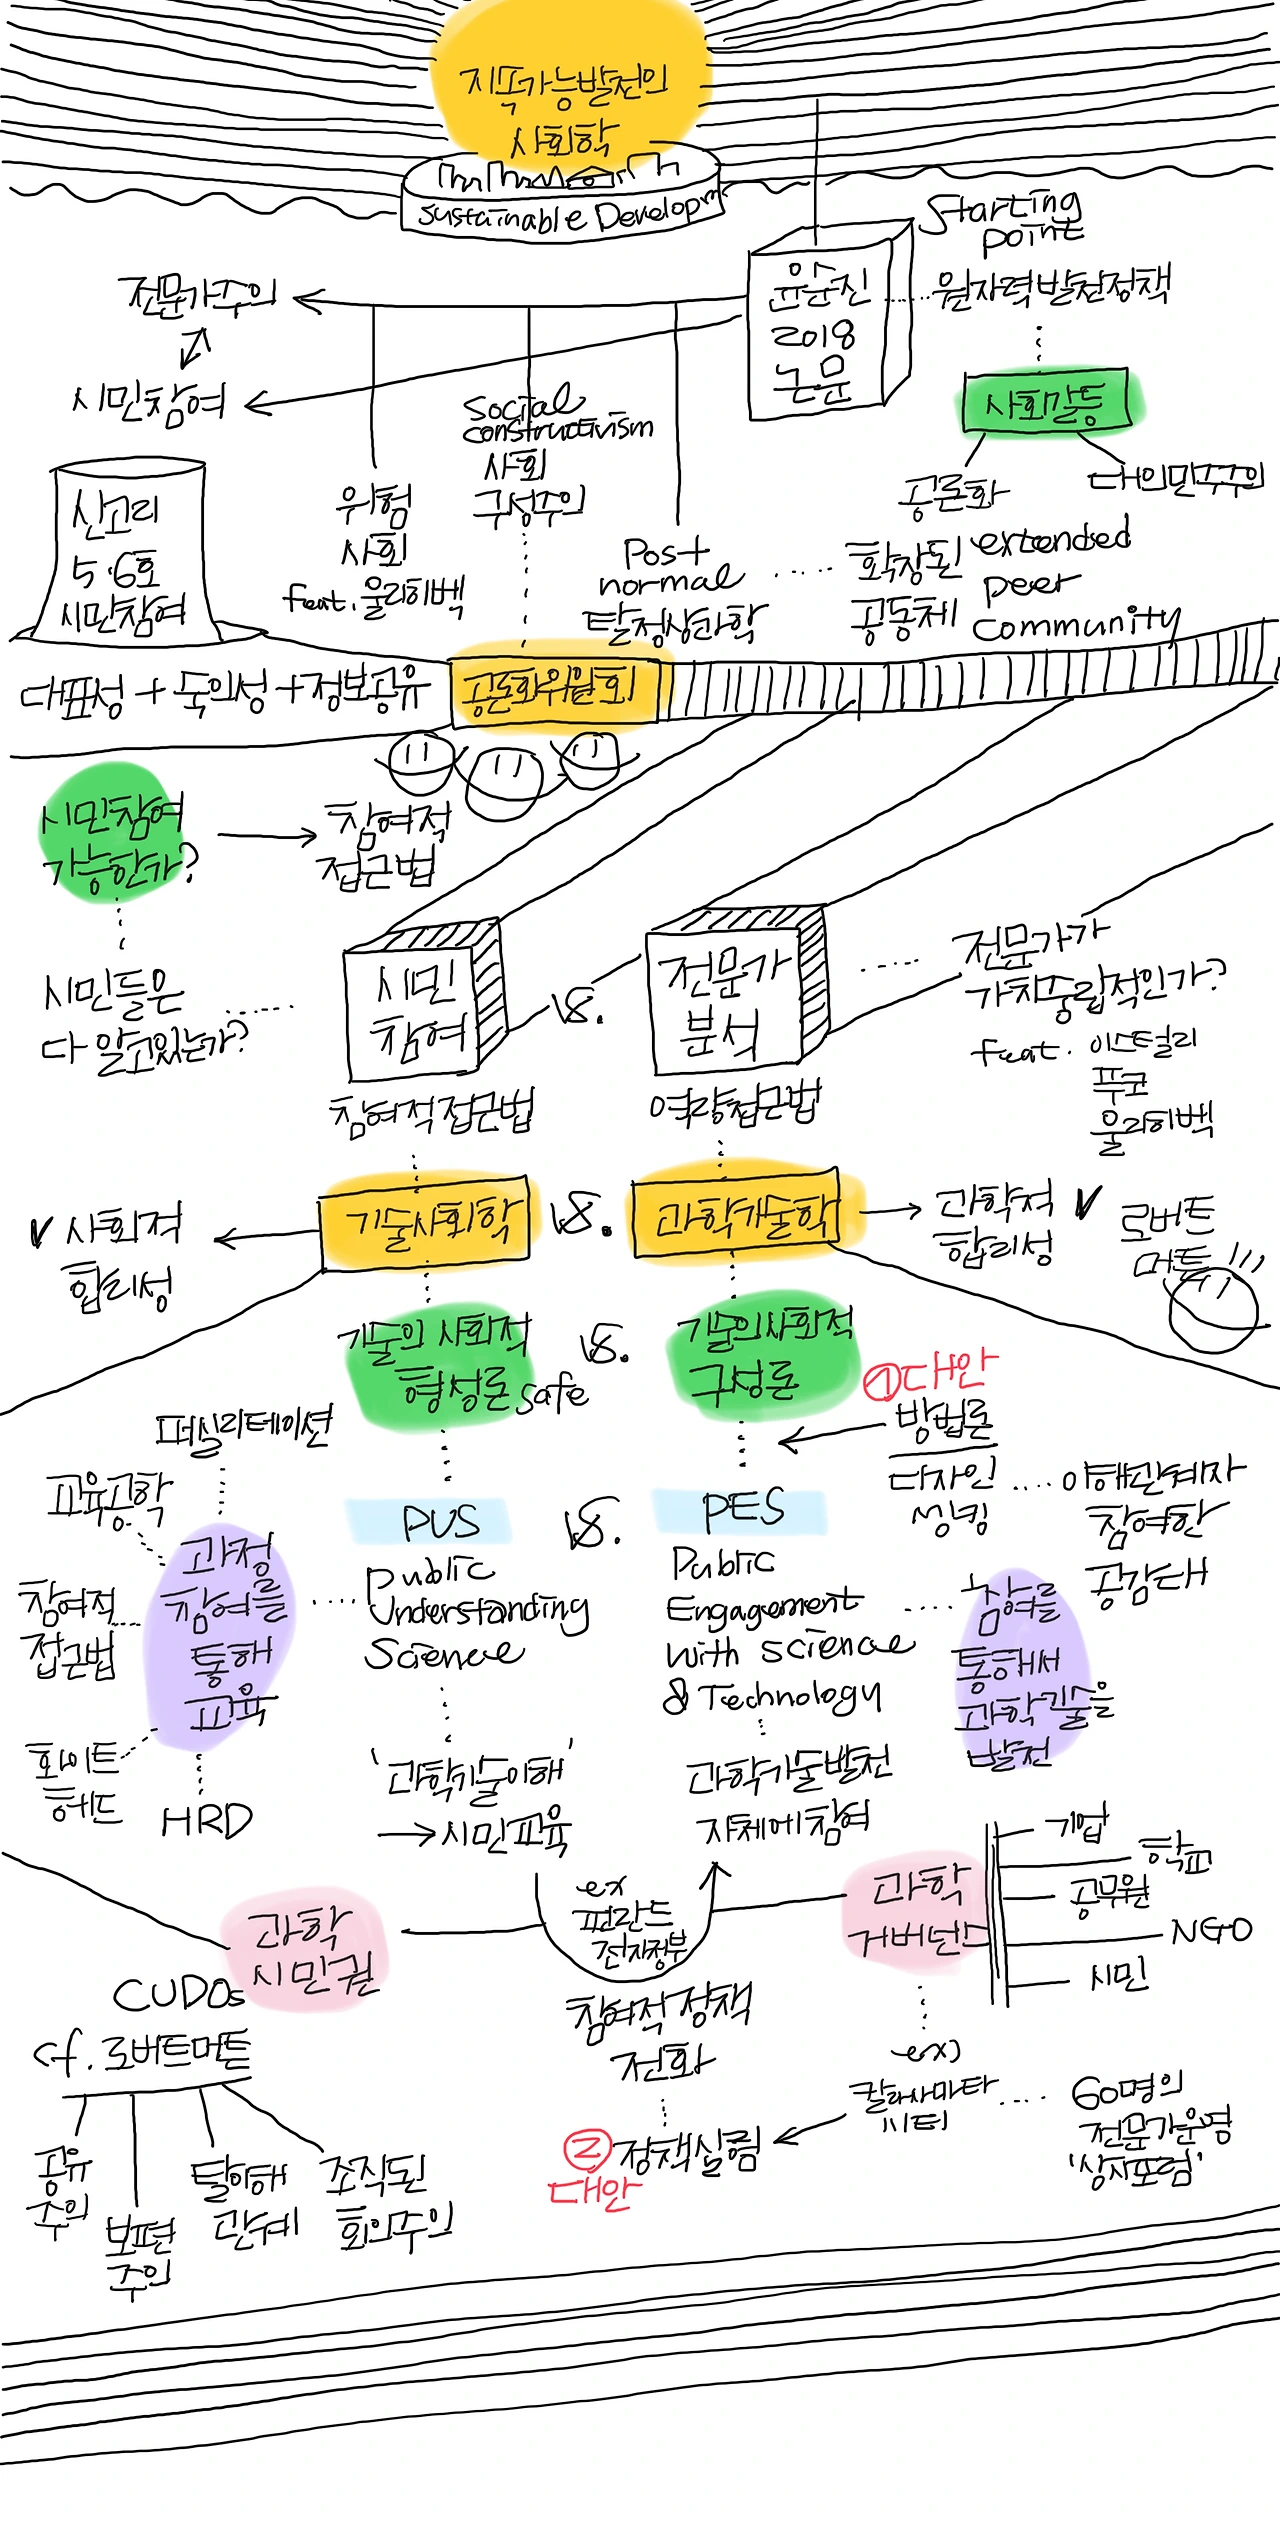 지속가능발전의
사회학
Sustainable Developm
Starting
point
윤순진
2018
논문
원자력발전정책
전문가주의
시민참여
사회갈등
공론화
대의민주주의
Social
constructivism
사회
구성주의
위험
사회
feat. 울리히벡
신고리
5·6호
시민참여
Post
normal
탈정상과학
확장된
공동체
extended
peer
community
대표성 + 숙의성 + 정보공유
공론화위원회
시민참여
가능한가?
참여적
접근법
시민들은
다 알고있는가?
시민
참여
vs.
전문가
분석
전문가가
가치중립적인가?
feat. 이스털리
푸코
울리히벡
참여적접근법
역량접근법
사회적
합리성
기술사회학
vs.
과학기술학
과학적
합리성
로버트
머튼
기술의 사회적
형성론
safe
vs.
기술의사회적
구성론
①대안
방법론
디자인
씽킹
이해관계자
참여한
공감대
퍼실리테이션
교육공학
과정
참여를
통해
교육
참여적
접근법
화이트
헤드
HRD
PUS
vs.
PES
Public
Understanding
Science
Public
Engagement
with science
& Technology
참여를
통해서
과학기술을
발전
'과학기술이해'
→시민교육
과학기술발전
자체에참여
과학
시민권
ex
핀란드
전자정부
과학
거버넌스
기업
학교
공무원
NGO
시민
CUDOs
cf. 로버트머튼
공유
주의
보편
주의
탈이해
관계
조직된
회의주의
참여적 정책
전환
②정책실험
대안
ex)
칼라사마타
시티
60명의
전문가운영